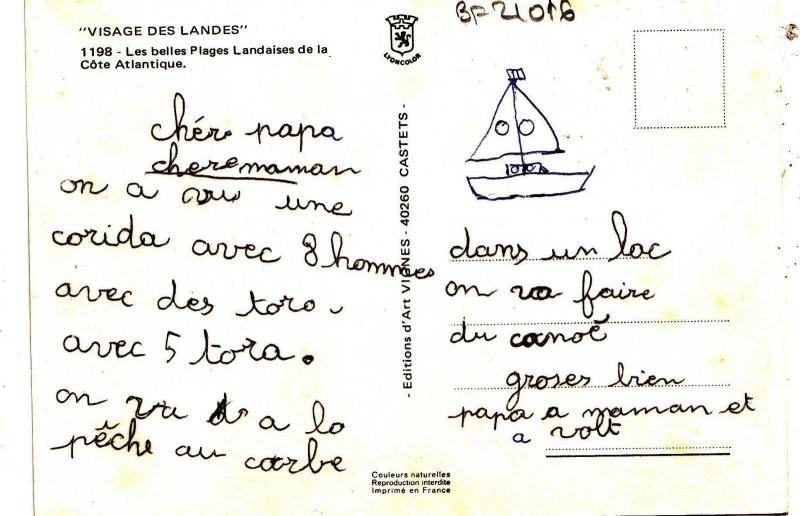 "VISAGE DES LANDES"
1198 - Les belles Plages Landaises de la
Côte Atlantique.
LYONCOLOR
BF 21016
chér papa
chere maman
on a vu une
corida avec 8 hommes
avec des toro.
avec 5 tora.
on va a la
pêche au carbe
- Editions d'Art VIGNES - 40260 CASTETS -
dans un lac
on va faire
du canoë
groses bien
papa a maman et
a volt
Couleurs naturelles
Reproduction interdite
Imprimé en France